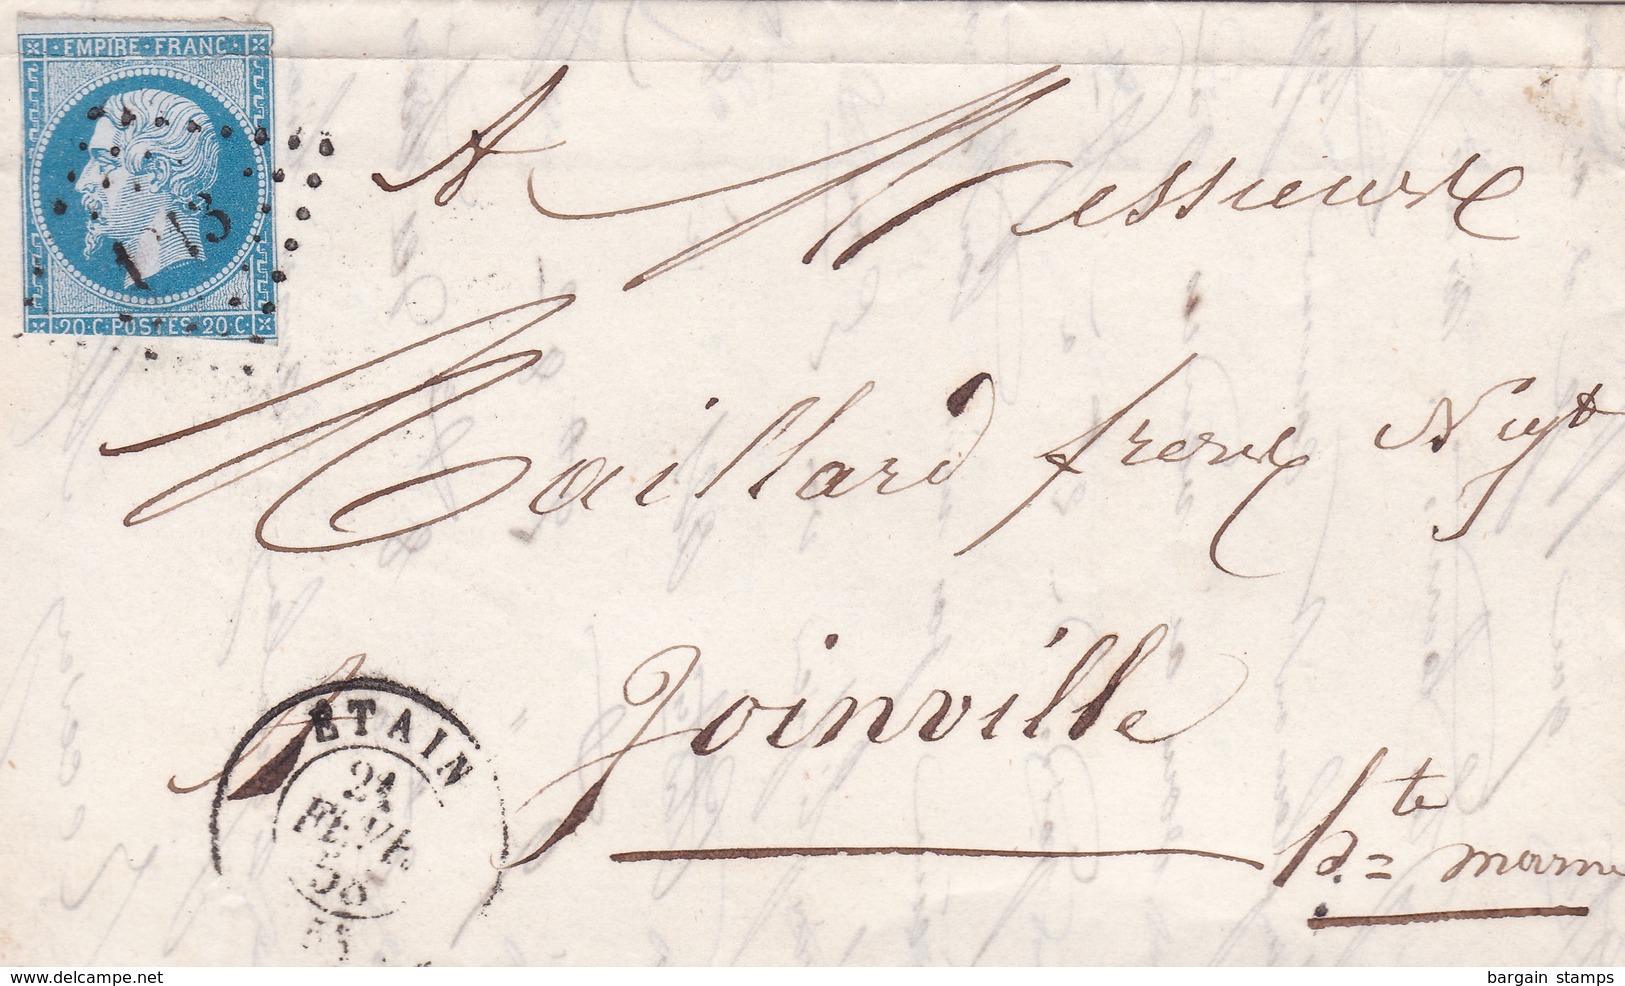 EMPIRE·FRANC·
20·C·POSTES·20·C·
A Messieurs
Maillard freres Nég.ts
A Joinville
h.te marne
ETAIN
21
FEVR.
delcampe.net
bargain stamps